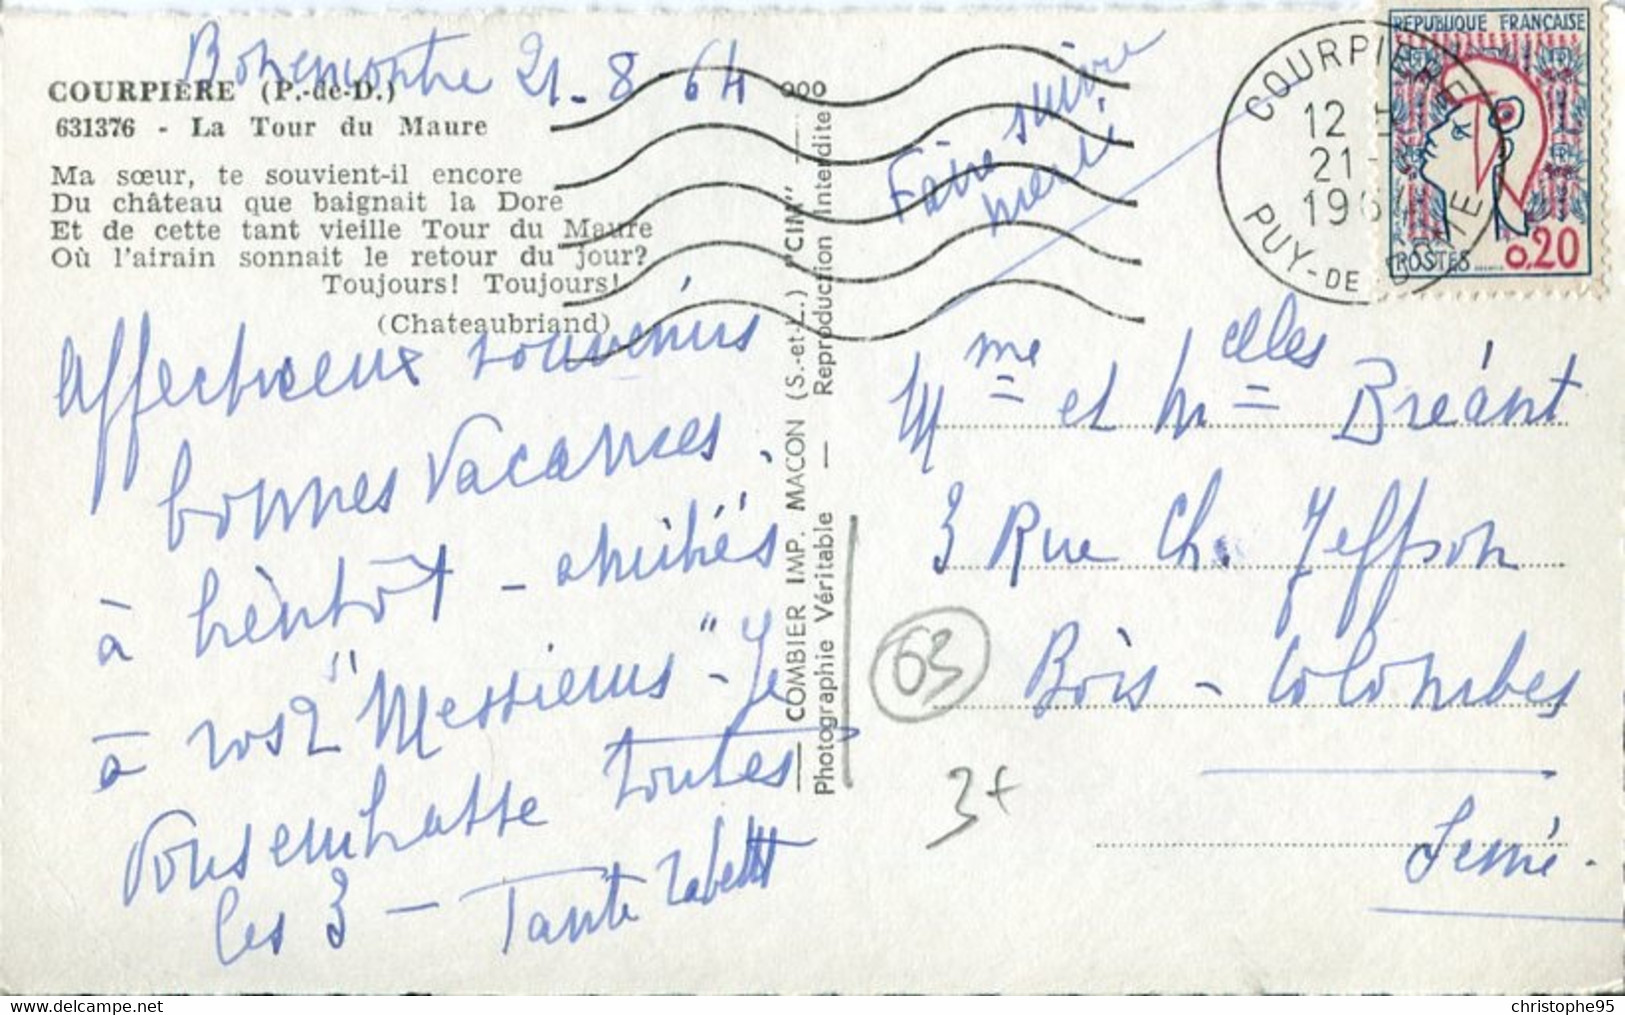 21-8-64
COURPIÈRE (P.-de-D.)
631376 - La Tour du Maure
Ma sœur, te souvient-il encore
Du château que baignait la Dore
Et de cette tant vieille Tour du Maure
Où l'airain sonnait le retour du jour?
Toujours! Toujours!
(Chateaubriand)
Affectueux souvenirs
bonnes vacances.
à bientôt - amitiés
à vos 2 "Messieurs" - Je
vous embrasse toutes
les 3 - Tante
COMBIER IMP. MACON (S.-et-L.) "CIM"
Photographie Véritable — Reproduction Interdite
Faire suivre
merci
COURPIERE
12 H
21
196
PUY-DE-D
REPUBLIQUE FRANÇAISE
POSTES
0,20
Mme et Melles Bréant
3 Rue Ch. Jeffson
Bois-Colombes
Seine.
63
3f
christophe95